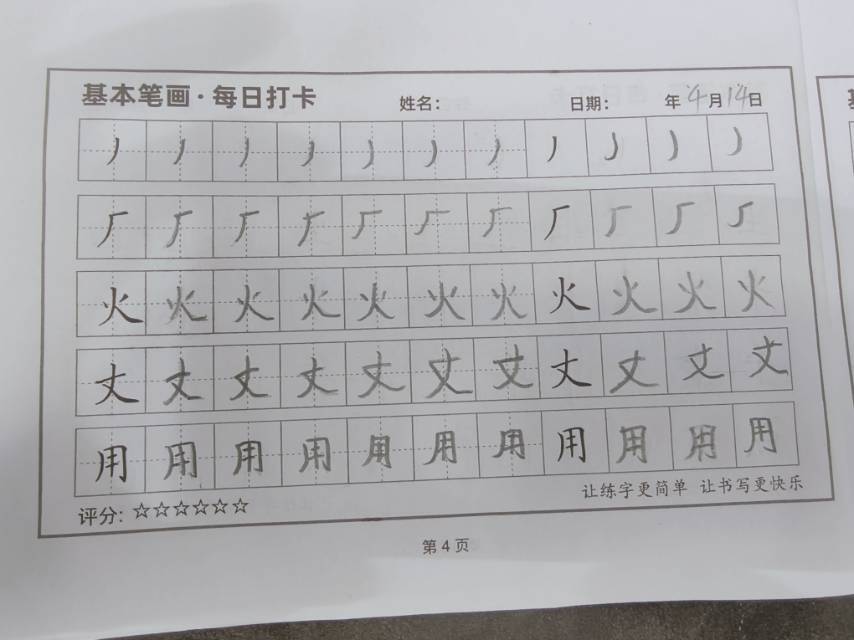 基本笔画·每日打卡 姓名： 日期： 年4月14日
丿丿丿丿丿丿丿丿丿丿丿
厂厂厂厂厂厂厂厂厂厂厂
火火火火火火火火火火火
丈丈丈丈丈丈丈丈丈丈丈
用用用用用用用用用用用
评分：☆☆☆☆☆☆ 让练字更简单 让书写更快乐
第 4 页